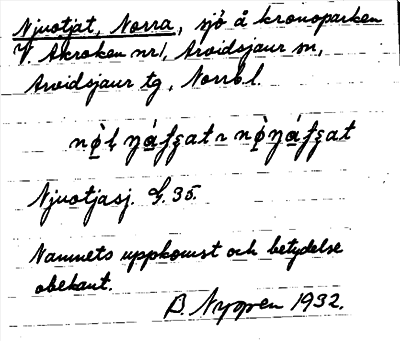 Njuotjat, Norra, sjö å kronoparken
V. Akroken nr 1, Arvidsjaur sn,
Arvidsjaur tg, Norrb l.
Njuotjasj. G. 35.
Namnets uppkomst och betydelse
obekant.
B. Nyppen 1932.